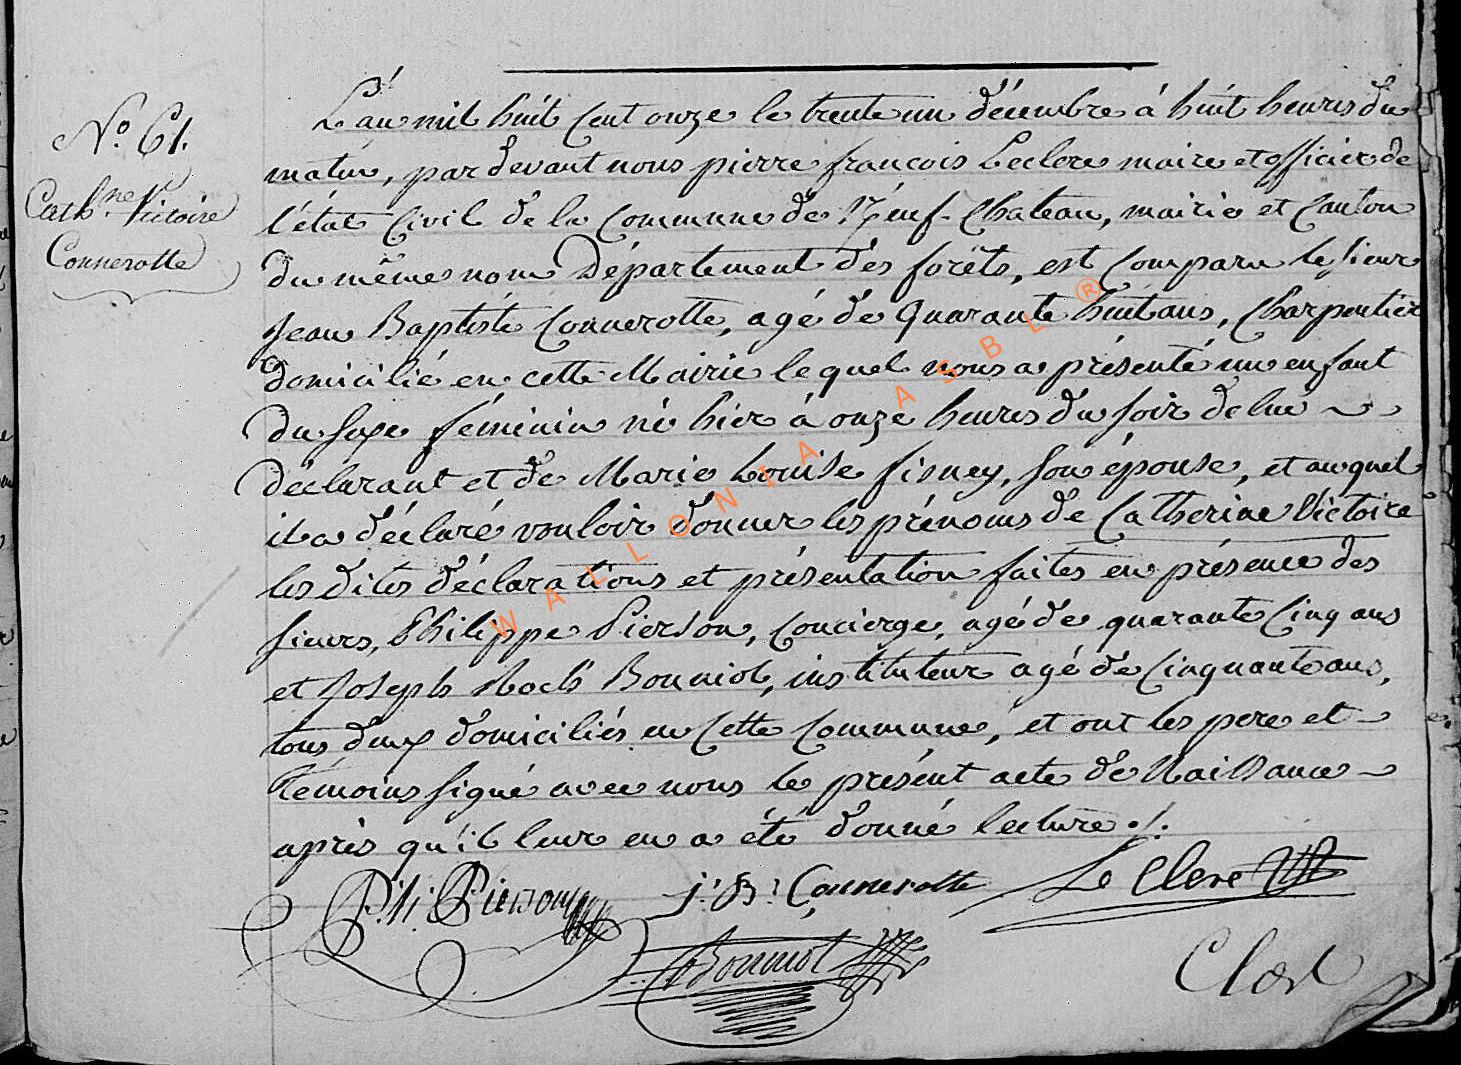 N.º 61.
Cath.ne Victoire
Connerotte
L'an mil huit cent onze le trente un décembre à huit heures du
matin, par devant nous pierre françois Leclerc maire et officier de
l'état Civil de la Commune de Neuf-Chateau, mairie et Canton
du même nom Département des forêts, est Comparu le sieur
Jean Baptiste Connerotte, agé de quarante huit ans, Charpentier
domicilié en cette Mairie lequel nous a présenté un enfant
du sexe féminin né hier à onze heures du soir de lui
déclarant et de Marie Louise fisney, son épouse, et auquel
il a déclaré vouloir donner les prénoms de Catherine Victoire
les dites déclarations et présentation faites en présence des
sieurs, Philippe Pierson, Concierge, agé de quarante Cinq ans
et Joseph Roch Bonniot, instituteur agé de Cinquante ans,
tous deux domiciliés en Cette Commune, et ont les pere et
témoins signé avec nous le présent acte de Naissance
après qu'il leur en a été donné lecture ./.
P. h. Pierson J. B. Connerotte Le Clerc
Bonniot
Clos
WALLONIA ASBL ®